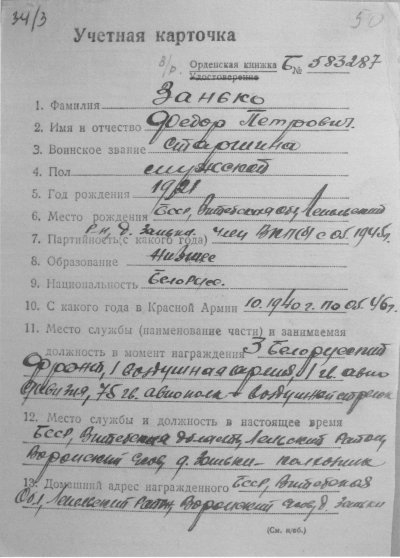 34/3
50
Учетная карточка
в/р. Орденская книжка Б № 583287
Удостоверение
1. Фамилия Занько
2. Имя и отчество Федор Петрович.
3. Воинское звание старшина
4. Пол мужской
5. Год рождения 1921
6. Место рождения БССР, Витебская обл, Лепельский
р-н, д. Заньки.
7. Партийность (с какого года) член ВКП(б) с 05.1945г.
8. Образование низшее
9. Национальность Белорус.
10. С какого года в Красной Армии 10.1940г. по 05.46г.
11. Место службы (наименование части) и занимаемая
должность в момент награждения 3 Белорусский
фронт, 1 воздушная армия, 1 гв. авио
дивизия, 75 гв. авиополк – воздушной стрелок
12. Место службы и должность в настоящее время
БССР, Витебская область, Лепельский район,
с/сов, д. Заньки – колхозник
13. Домашний адрес награжденного БССР, Витебская
обл, Лепельский район, с/сов, д. Заньки
(См. н/об.)